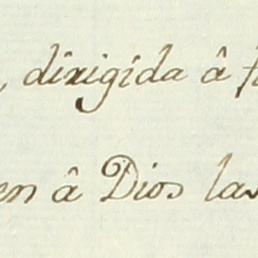 , dirigida â
en â Dios las